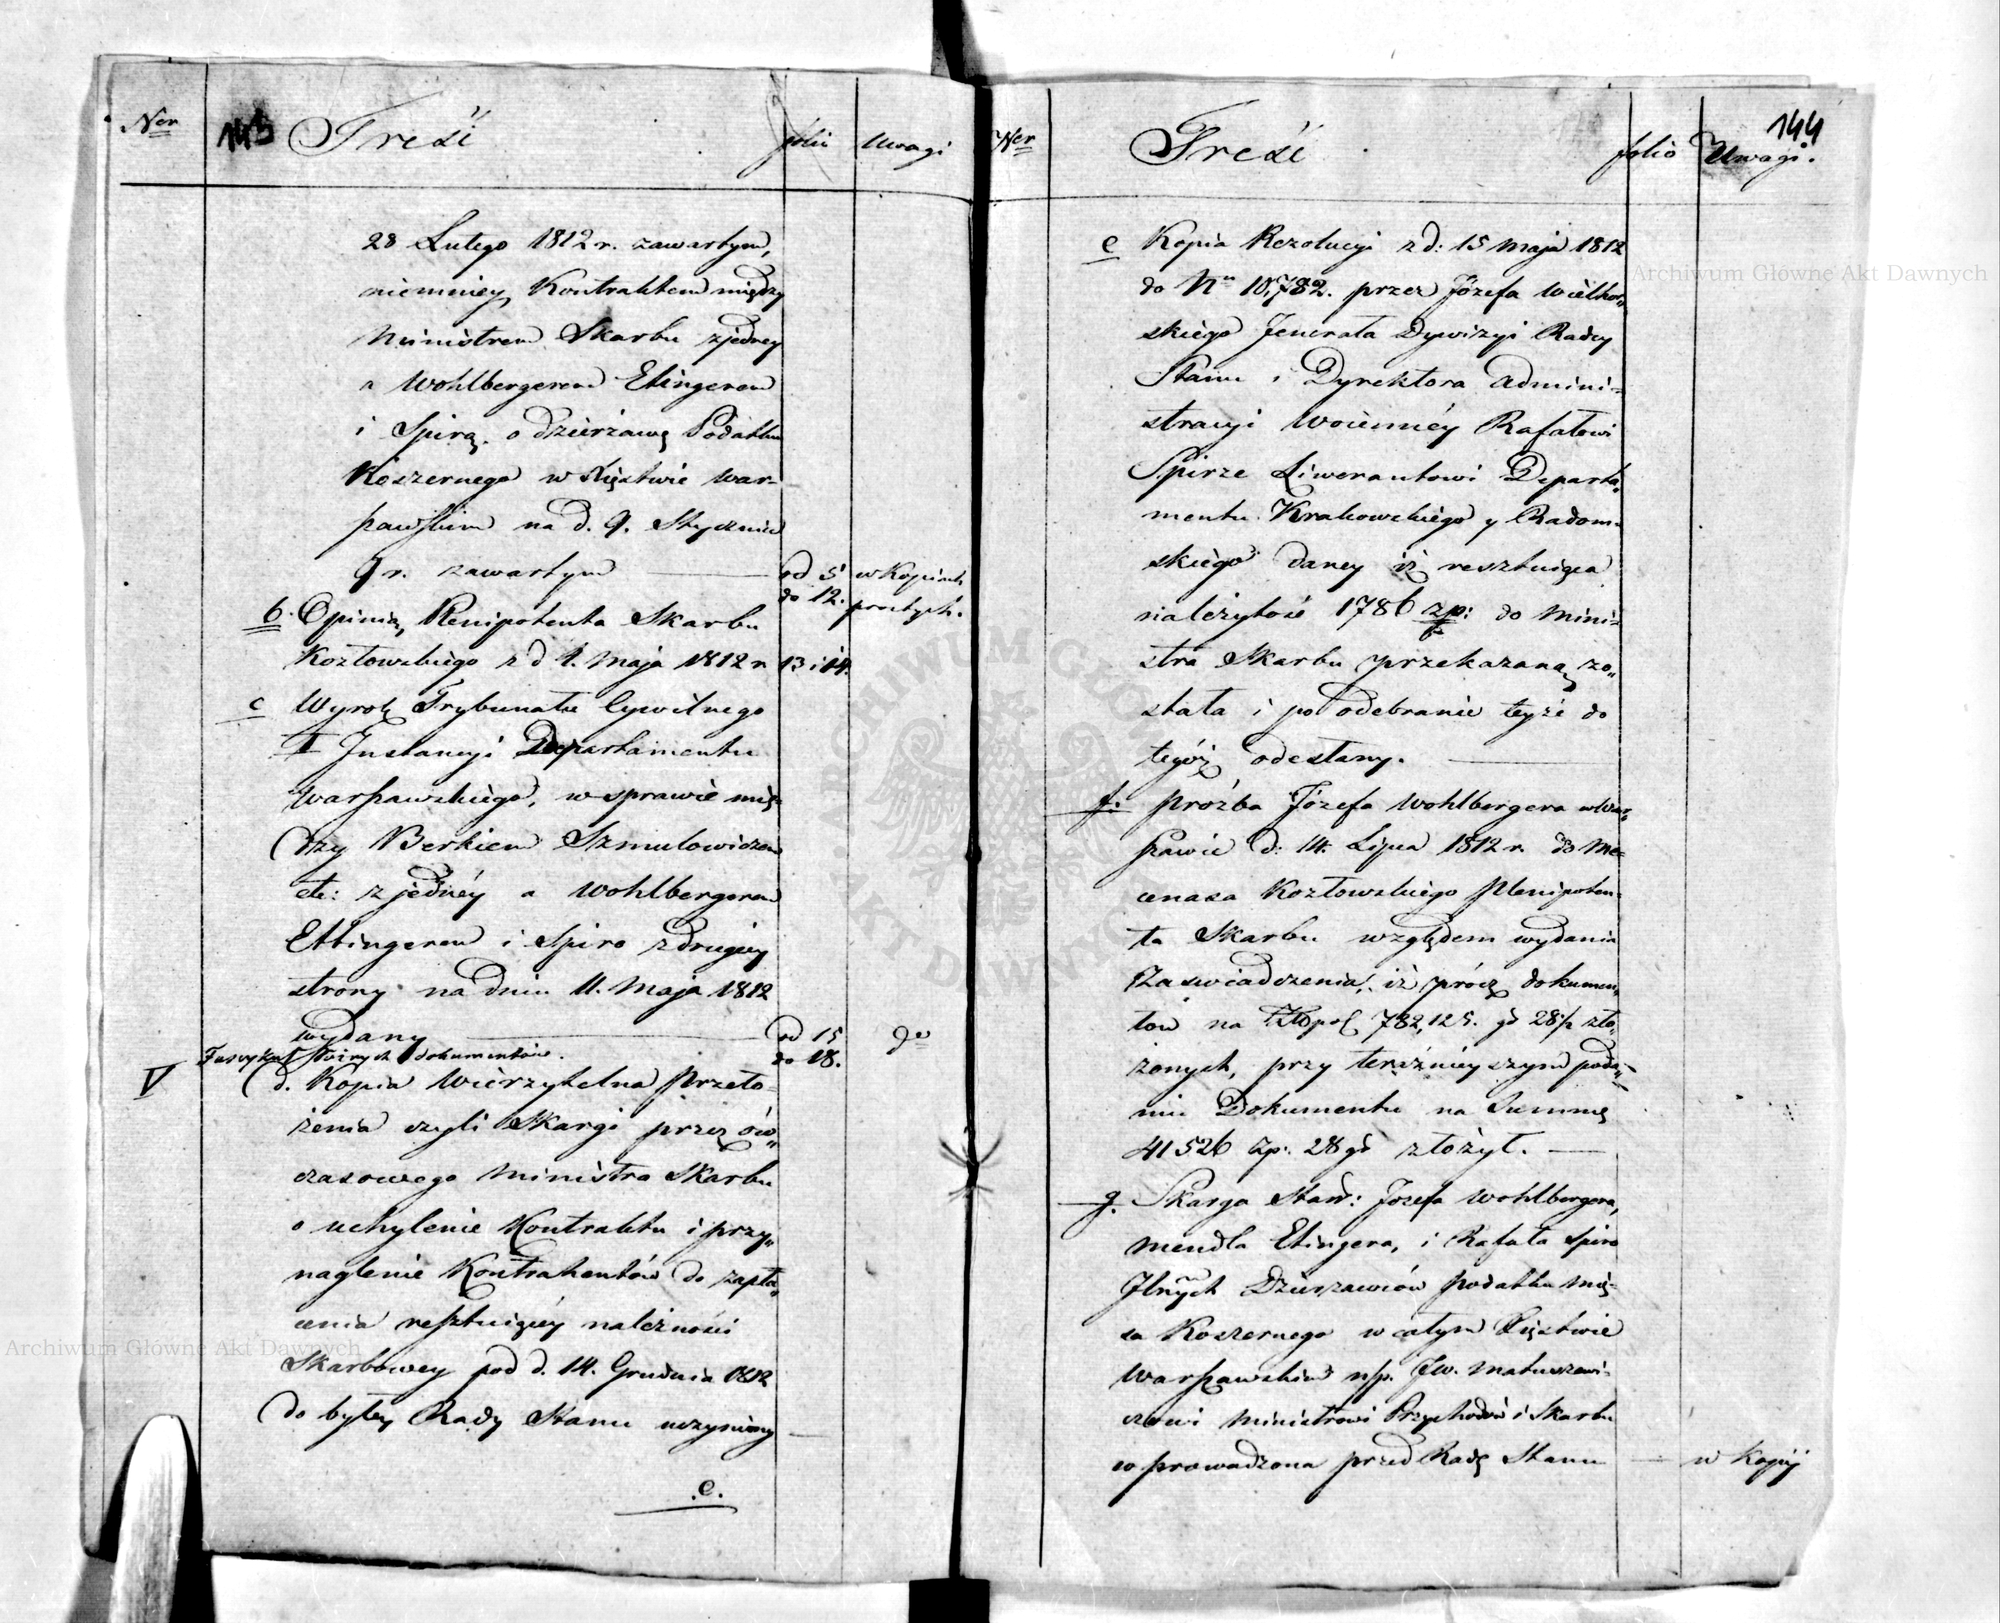 Ner 143 Treść folii Uwagi
28 Lutego 1812 r. zawartym,
niemniey Kontraktem między
Ministrem Skarbu z jedney
a Wohlbergerem Etingerem
i Spirą o dzierżawę Podatku
Koszernego w Xięstwie War-
szawskim na d. 9. Stycznia
r. zawartym — od 5 do 12. w Kopiach prostych.
b. Opinia Plenipotenta Skarbu
Kozłowskiego z d 1. Maja 1812 r 13 i 14.
c Wyrok Trybunału Cywilnego
I Instancyi Departamentu
Warszawskiego, w sprawie mię-
dzy Berkiem Szmulowiczem
etc: z jednéy a Wohlbergerem
Ettingerem i Spiro z drugiey
strony na dniu 11. Maja 1812
wydany — od 15 do 18. do
V Fascykuł różnych dokumentów.
d. Kopia Wierzytelna Przeło-
żenia czyli Skargi przez ów„
czasowego Ministra Skarbu
o uchylenie Kontraktu i przy„
naglenie Kontrahentów do zapła„
cenia resztuiącéy należności
Skarbowey pod d. 14. Grudnia 1812
do byłey Rady Stanu uczyniony —
.e.
Ner Treść folio Uwagi.
144
e Kopia Rezolucyi z d: 15 Maja 1812
do Nru 10,782. przez Józefa Wielhor„
skiego Jenerała Dywizyi Radcy
Stanu i Dyrektora Admini-
stracyi Woiennéy Rafałowi
Spirze Liwerantowi Departa„
mentu Krakowskiego y Radom-
skiego daney iż resztuiąca
należytość 1786 zp: do Mini-
stra Skarbu przekazaną zo„
stała i po odebranie teyże do
tegóż odesłany. —
f. Proźba Józefa Wohlbergera w War„
szawie d: 14. Lipca 1812 r. do Me-
cenasa Kozłowskiego Plenipoten-
ta Skarbu względem wydania
Zaświadczenia, iż prócz dokumen„
tów na Złopol 782,125. gr 28½ zło„
żonych, przy teraźnieyszym poda-
niu Dokumentu na Summę
41526 zp: 28 gr złożył. —
g. Skarga Staro: Jozefa Wohlbergera,
Mendla Etingera, i Rafała Spiro
Jlnych Dzierzawców podatku mię-
sa Koszernego w całym Xięstwie
Warszawskim np. JW. Matuszewi-
czowi Ministrowi Przychodów i Skarbu
wprowadzona przed Radę Stanu — w kopij
Archiwum Główne Akt Dawnych
Archiwum Główne Akt Dawnych
ARCHIWUM GŁÓWNE AKT DAWNYCH